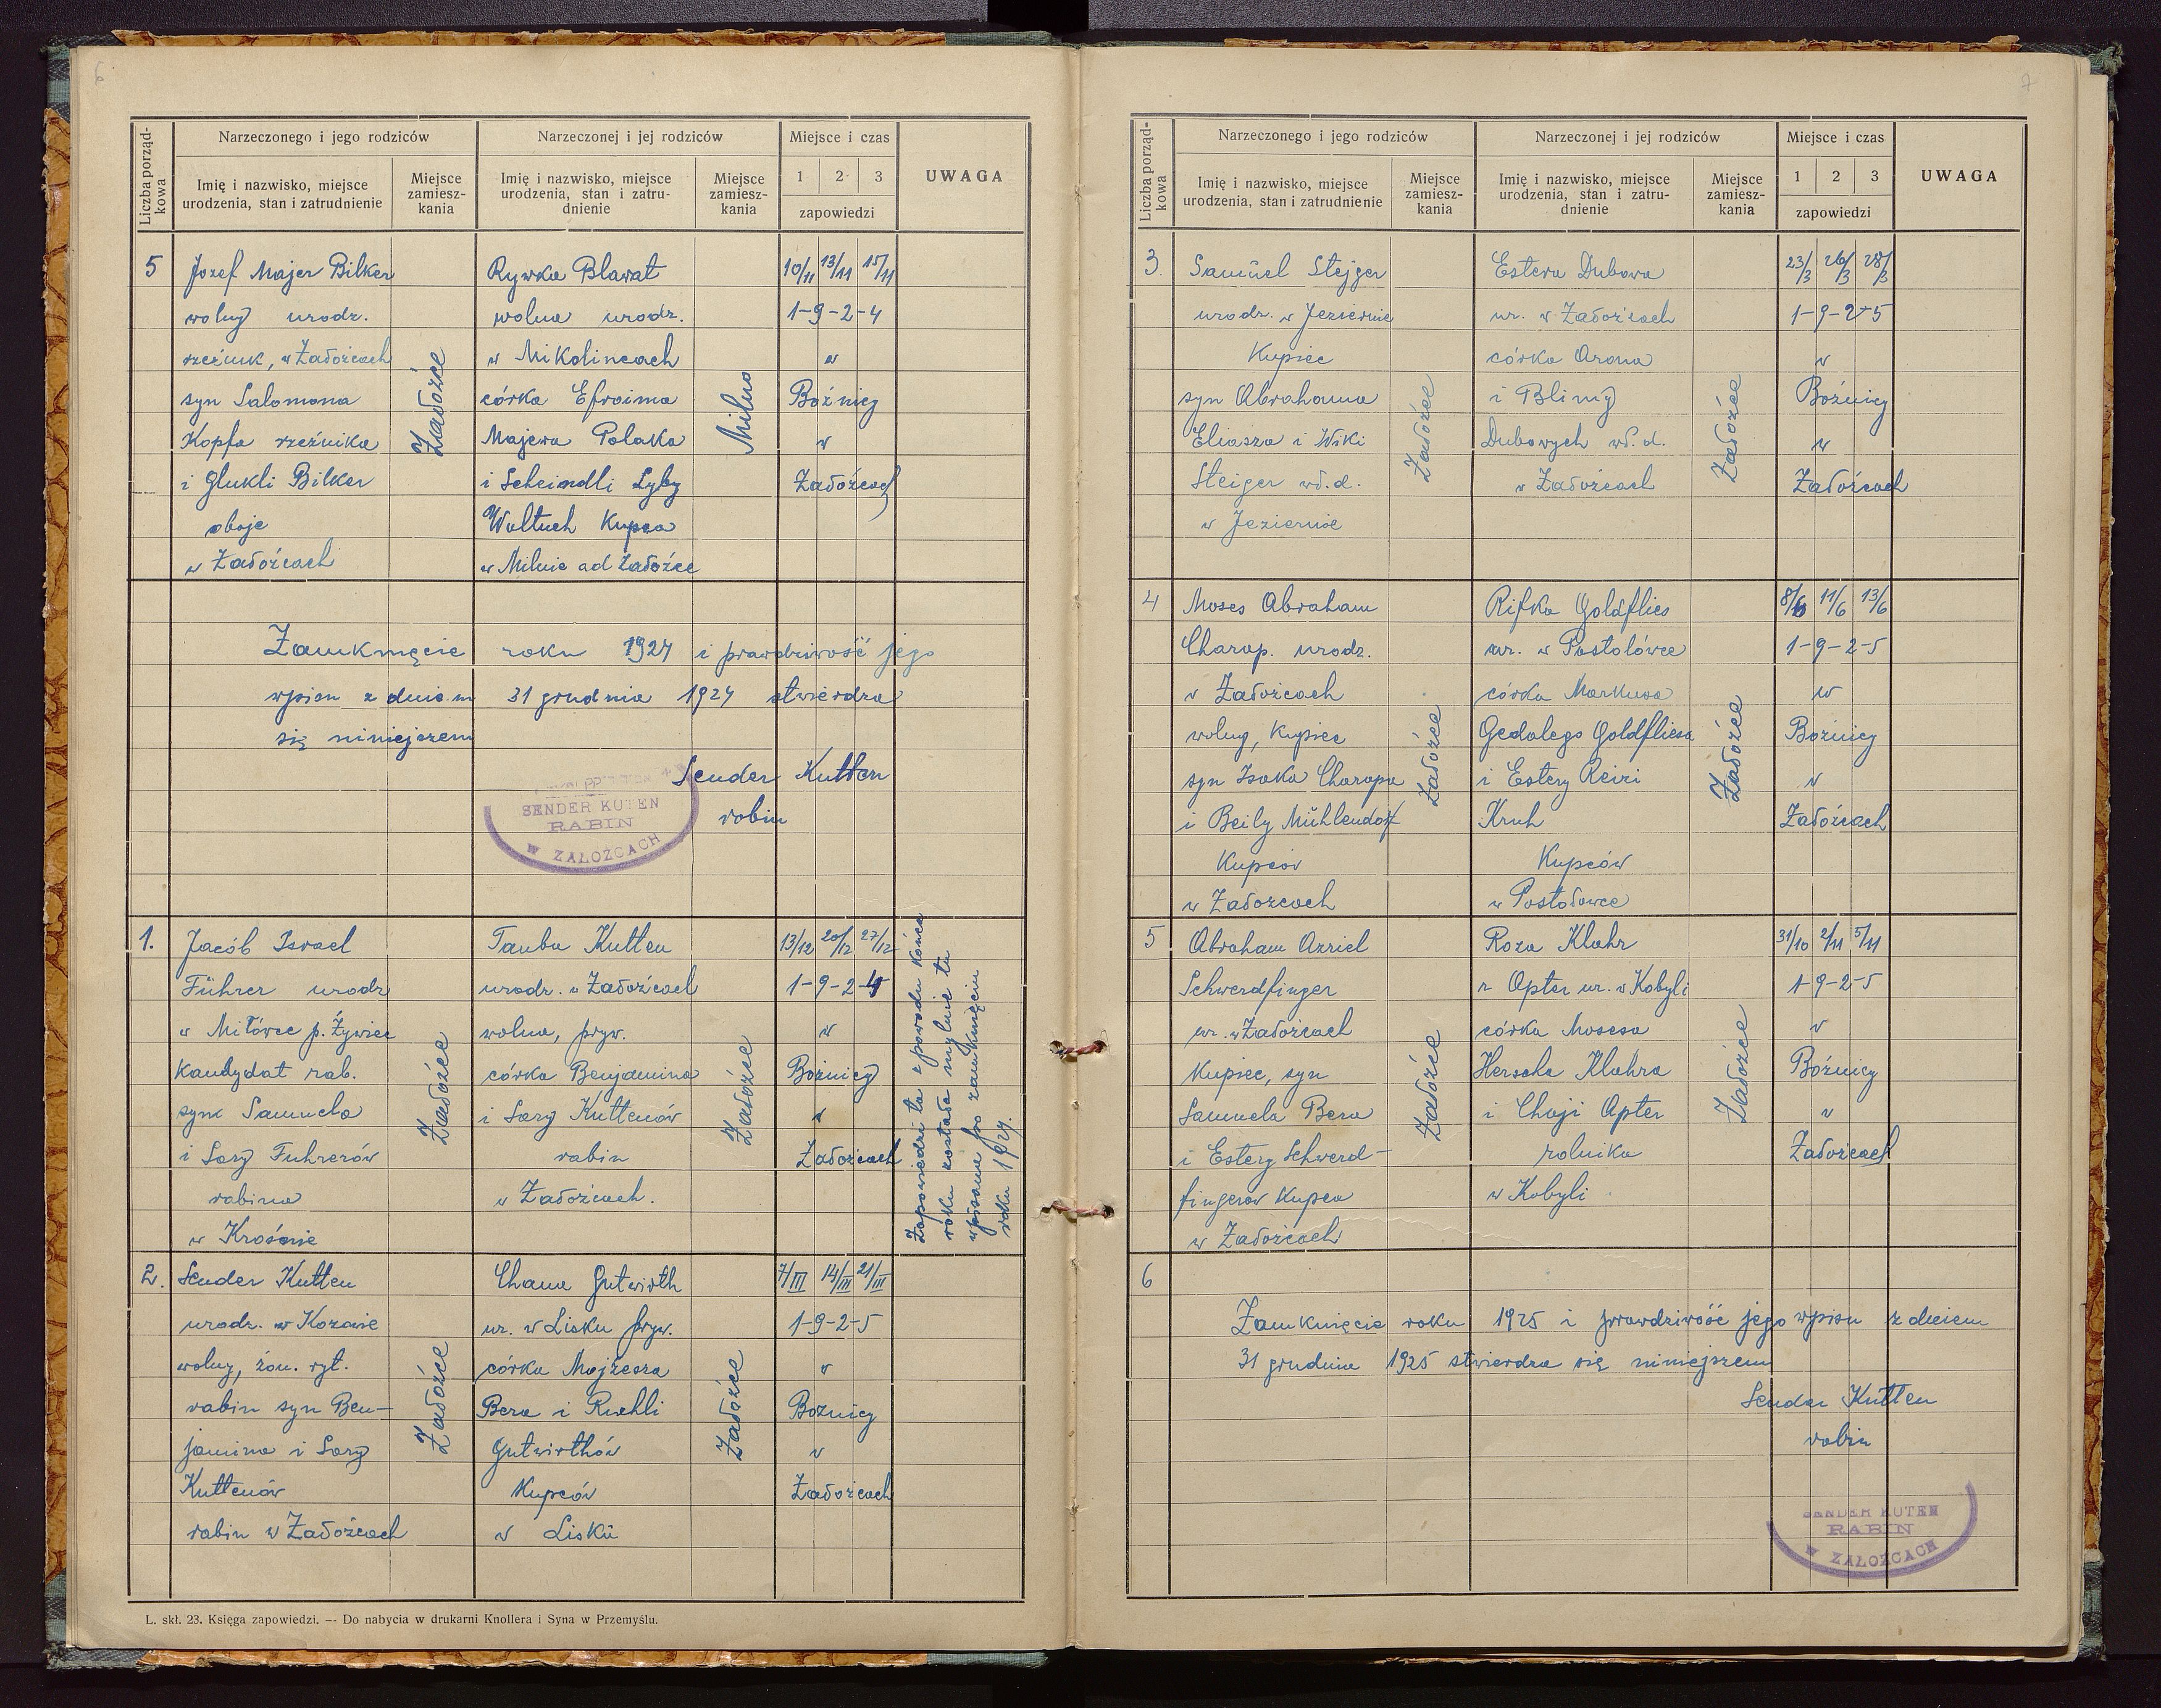 6
Liczba porząd-
kowa
Narzeczonego i jego rodziców
Narzeczonej i jej rodziców
Miejsce i czas
UWAGA
Imię i nazwisko, miejsce
urodzenia, stan i zatrudnienie
Miejsce
zamiesz-
kania
Imię i nazwisko, miejsce
urodzenia, stan i zatru-
dnienie
Miejsce
zamiesz-
kania
1 2 3
zapowiedzi
5
Jozef Majer Bilker
wolny urodz.
rzeźnik, w Załoźcach
syn Salomona
Kopfa rzeźnika
i Glukli Bilker
oboje
w Załoźcach
Załoźce
Rywka Blawat
wolna urodz.
w Mikolincach
córka Efroima
Majera Polaka
i Scheindli Lyby
Waltuch Kupca
w Milnie ad Załoźce
Milno
10/11 13/11 15/11
1-9-2-4
w
Bożnicy
w
Załoźcach
Zamknięcie roku 1924 i prawdziwość jego
wpisu z dniem 31 grudnia 1924 stwierdza
się niniejszem
Sender Kutten
rabin
SENDER KUTEN
RABIN
W ZAŁOŹCACH
1.
Jacób Israel
Führer urodz
w Miłówce p. Żywiec
kandydat rab.
syn Samuela
i Sary Fuhrerów
rabina
w Krośnie
Załoźce
Tauba Kutten
urodz. w Załoźcach
wolna, pryw.
córka Benjamina
i Sary Kuttenów
rabin
w Załoźcach.
Załoźce
13/12 20/12 27/12
1-9-2-4
w
Bożnicy
w
Załoźcach
Zapowiedzi ta z powodu końca
roku została mylnie tu
wpisana po zamknięciu
roku 1924.
2.
Sender Kutten
urodz. w Kozowie
wolny, żon. ryt.
rabin syn Ben-
jamina i Sary
Kuttenów
rabin w Załoźcach
Załoźce
Chana Gutwirth
ur. w Lisku pryw.
córka Mojżesza
Bera i Ruchli
Gutwirthów
Kupców
w Lisku
Załoźce
7/III 14/III 21/III
1-9-2-5
w
Bożnicy
w
Załoźcach
L. skł. 23. Księga zapowiedzi. — Do nabycia w drukarni Knollera i Syna w Przemyślu.
7
Liczba porząd-
kowa
Narzeczonego i jego rodziców
Narzeczonej i jej rodziców
Miejsce i czas
UWAGA
Imię i nazwisko, miejsce
urodzenia, stan i zatrudnienie
Miejsce
zamiesz-
kania
Imię i nazwisko, miejsce
urodzenia, stan i zatru-
dnienie
Miejsce
zamiesz-
kania
1 2 3
zapowiedzi
3.
Samuel Stejger
urodz. w Jeziernie
Kupiec
syn Abrahama
Eliasza i Wiki
Steiger wł. d.
w Jeziernie
Załoźce
Estera Dubowa
ur. w Załoźcach
córka Arona
i Blimy
Dubowych wł. d.
w Załoźcach
Załoźce
23/3 26/3 28/3
1-9-2-5
w
Bożnicy
w
Załoźcach
4
Moses Abraham
Charap. urodz.
w Załoźcach
wolny, Kupiec
syn Isaka Charapa
i Beily Mühlendorf
Kupców
w Załoźcach
Załoźce
Rifka Goldflies
ur. w Postolówce
córka Markusa
Gedalego Goldfliesa
i Estery Reizi
Kruh
Kupców
w Postołowce
Załoźce
8/6 11/6 13/6
1-9-2-5
w
Bożnicy
w
Załoźcach
5
Abraham Azriel
Schwerdfinger
ur. w Załoźcach
Kupiec, syn
Samuela Bera
i Estery Schwerd-
fingerów Kupca
w Załoźcach
Załoźce
Roza Klahr
r Opter ur. w Kobyli
córka Mosesa
Herscha Klahra
i Chaji Opter
rolnika
w Kobyli
Załoźce
31/10 2/11 5/11
1-9-2-5
w
Bożnicy
w
Załoźcach
6
Zamknięcie roku 1925 i prawdziwość jego wpisu z dniem
31 grudnia 1925 stwierdza się niniejszem
Sender Kutten
rabin
SENDER KUTEN
RABIN
W ZAŁOŹCACH